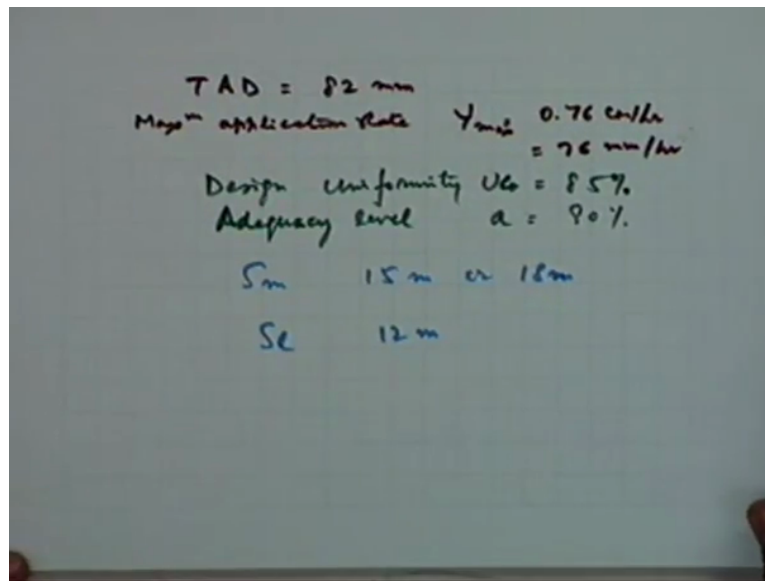 TAD = 82 mm
Maxm application Rate Ymax: 0.76 cm/hr
= 76 mm/hr
Design uniformity UCo = 85%
Adequacy level a = 90%
Sm 15 m or 18m
Se 12 m